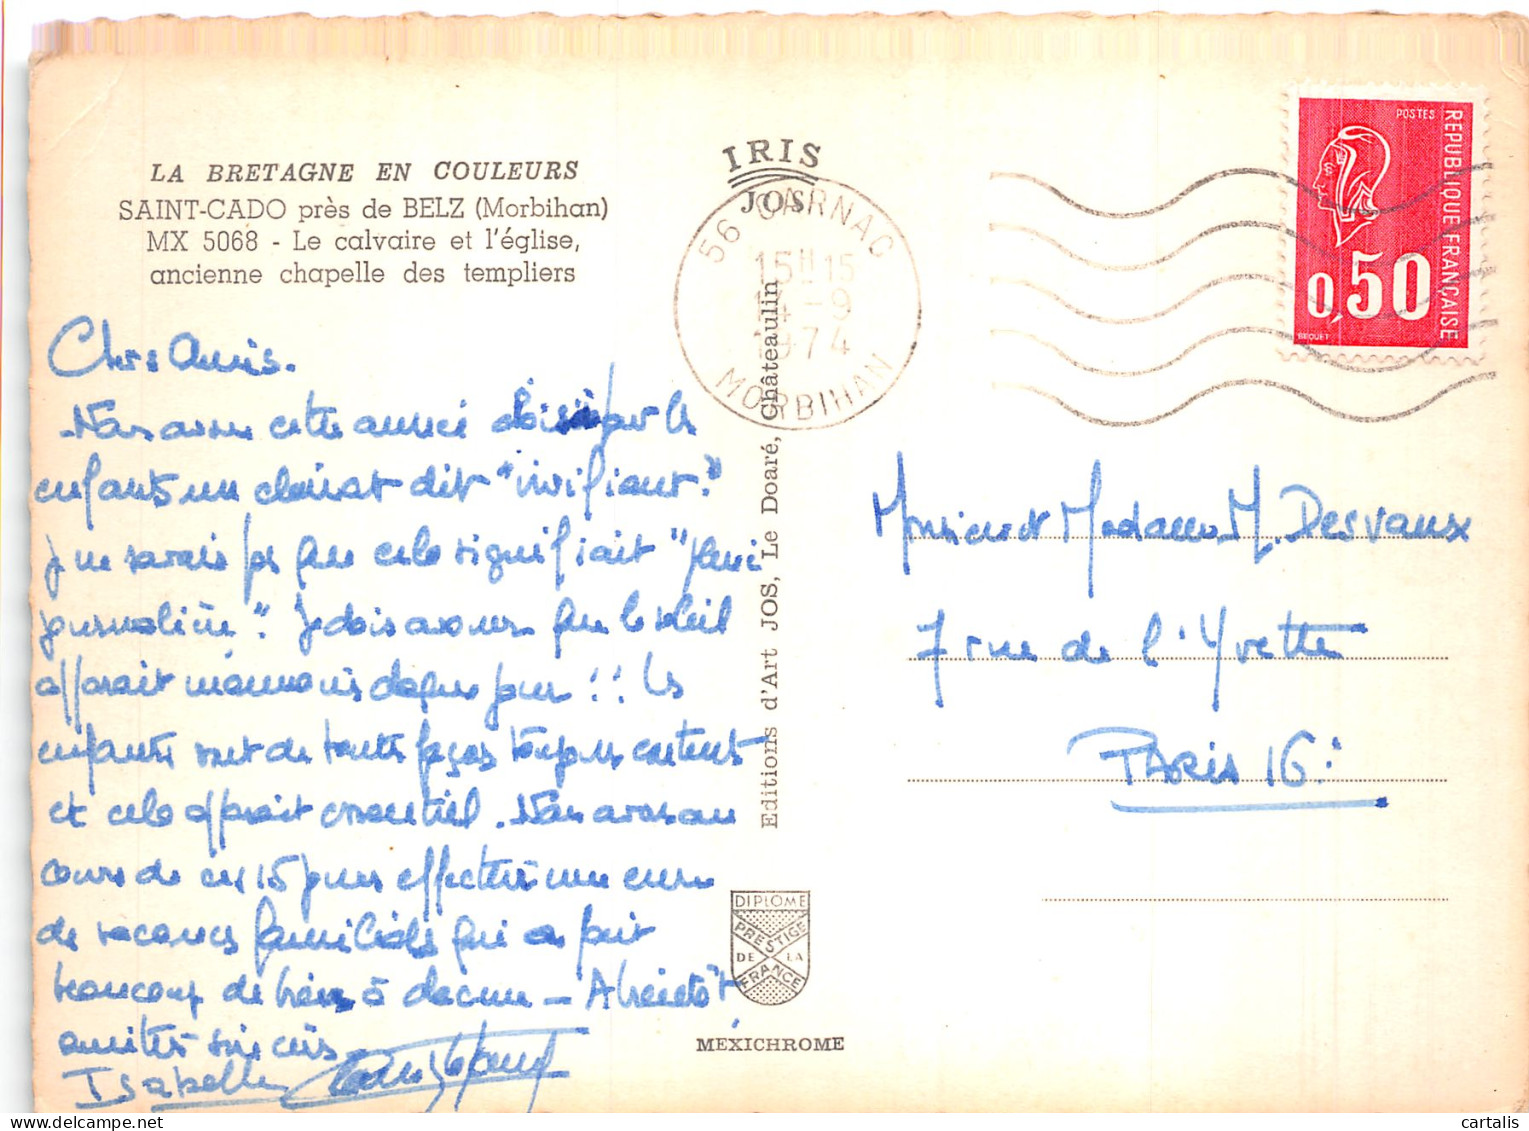 LA BRETAGNE EN COULEURS
SAINT-CADO près de BELZ (Morbihan)
MX 5068 - Le calvaire et l'église,
ancienne chapelle des templiers
Chers Amis.
Nous avons cette année choisi par les
enfants un climat dit "vivifiant."
Je ne savais pas que cela signifiait "pluie
journalière". Je dois avouer que le soleil
apparait néanmoins chaque jour !! les
enfants sont de toutes façons toujours contents
et cela apparait essentiel. Nous avons au
cours de ces 15 jours effectué une cure
de vacances familiales qui a fait
beaucoup de bien à chacun - A bientôt
amitiés sincères
Isabelle
IRIS
JOS
56 CARNAC
15H15
14-9
1974
MORBIHAN
Editions d'Art JOS, Le Doaré, Châteaulin
DIPLOME
PRESTIGE
DE LA
FRANCE
MEXICHROME
POSTES
REPUBLIQUE FRANÇAISE
0,50
BEQUET
Monsieur et Madame M. Desvaux
7 rue de l'Yvette
PARIS 16e
cartalis